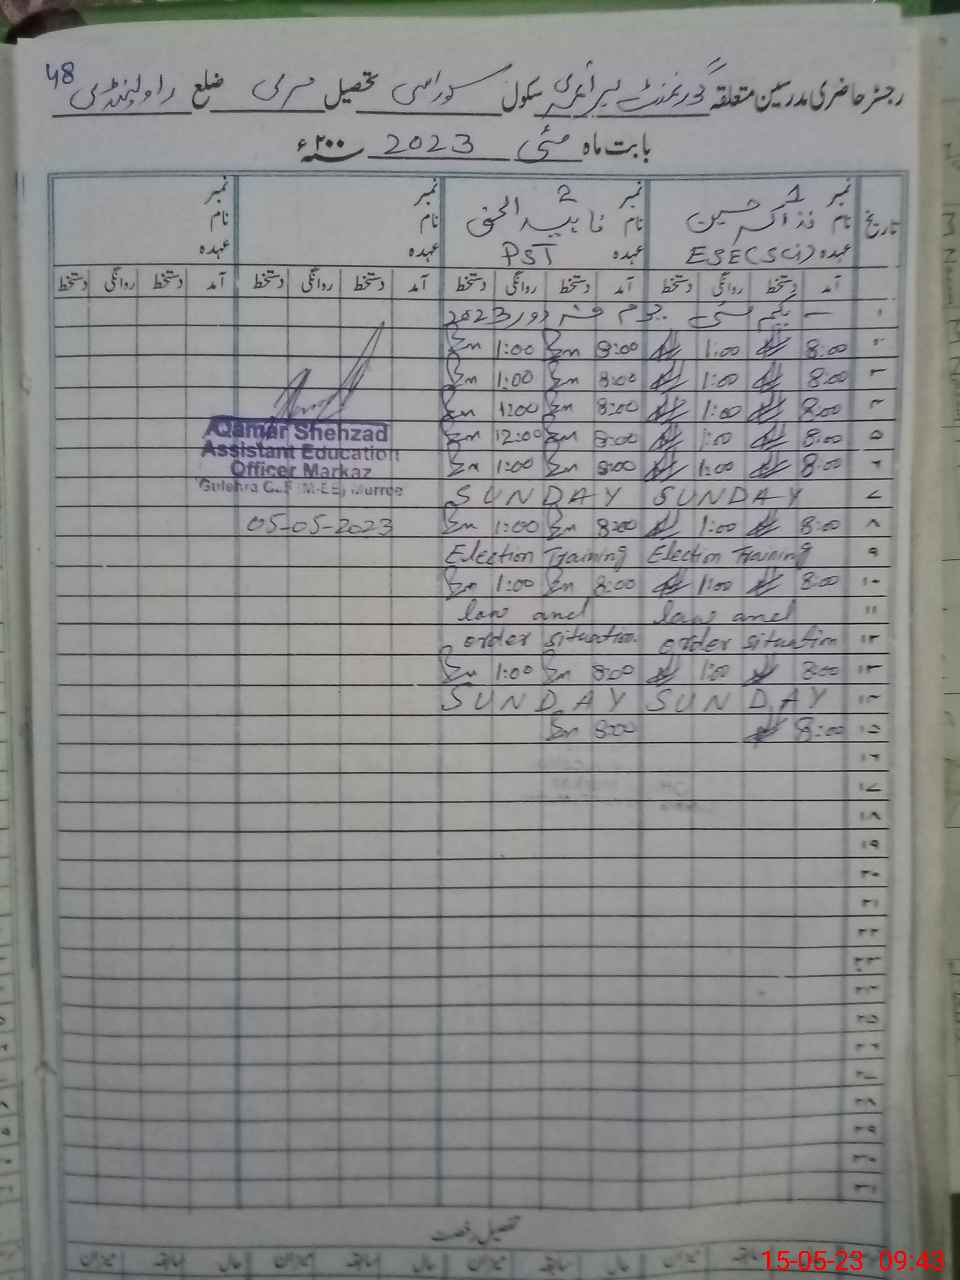 48
رجسٹر حاضری مدرسین متعلقہ گورنمنٹ پرائمری سکول سوراسی تحصیل مری ضلع راولپنڈی
بابت ماہ مئی 2023 سنہ ۲۰۰ء
تاریخ نمبر 1 نمبر 2 نمبر نمبر
نام ذاکر حسین نام نام نام
عہدہ ESE(Sci) عہدہ PST عہدہ عہدہ
آمد دستخط روانگی دستخط آمد دستخط روانگی دستخط آمد دستخط روانگی دستخط آمد دستخط روانگی دستخط
۱ یکم مئی یوم مزدور 2023
۲ 8:00 1:00 8:00 1:00
۳ 8:00 1:00 8:00 1:00
۴ 8:00 1:00 8:00 1:00
۵ 8:00 1:00 8:00 12:00
۶ 8:00 1:00 8:00 1:00
Qamar Shehzad
Assistant Education
Officer Markaz
05-05-2023
۷ SUNDAY SUNDAY
۸ 8:00 1:00 8:00 1:00
۹ Election Training Election Training
۱۰ 8:00 1:00 8:00 1:00
۱۱ law and law and
۱۲ order situation order situation
۱۳ 8:00 1:00 8:00 1:00
۱۴ SUNDAY SUNDAY
۱۵ 8:00 8:00
۱۶
۱۷
۱۸
۱۹
۲۰
۲۱
۲۲
۲۳
۲۴
۲۵
۲۶
۲۷
۲۸
۲۹
۳۰
۳۱
تفصیل رخصت
میزان سابقہ حال میزان سابقہ حال میزان سابقہ حال میزان سابقہ
15-05-23 09:43